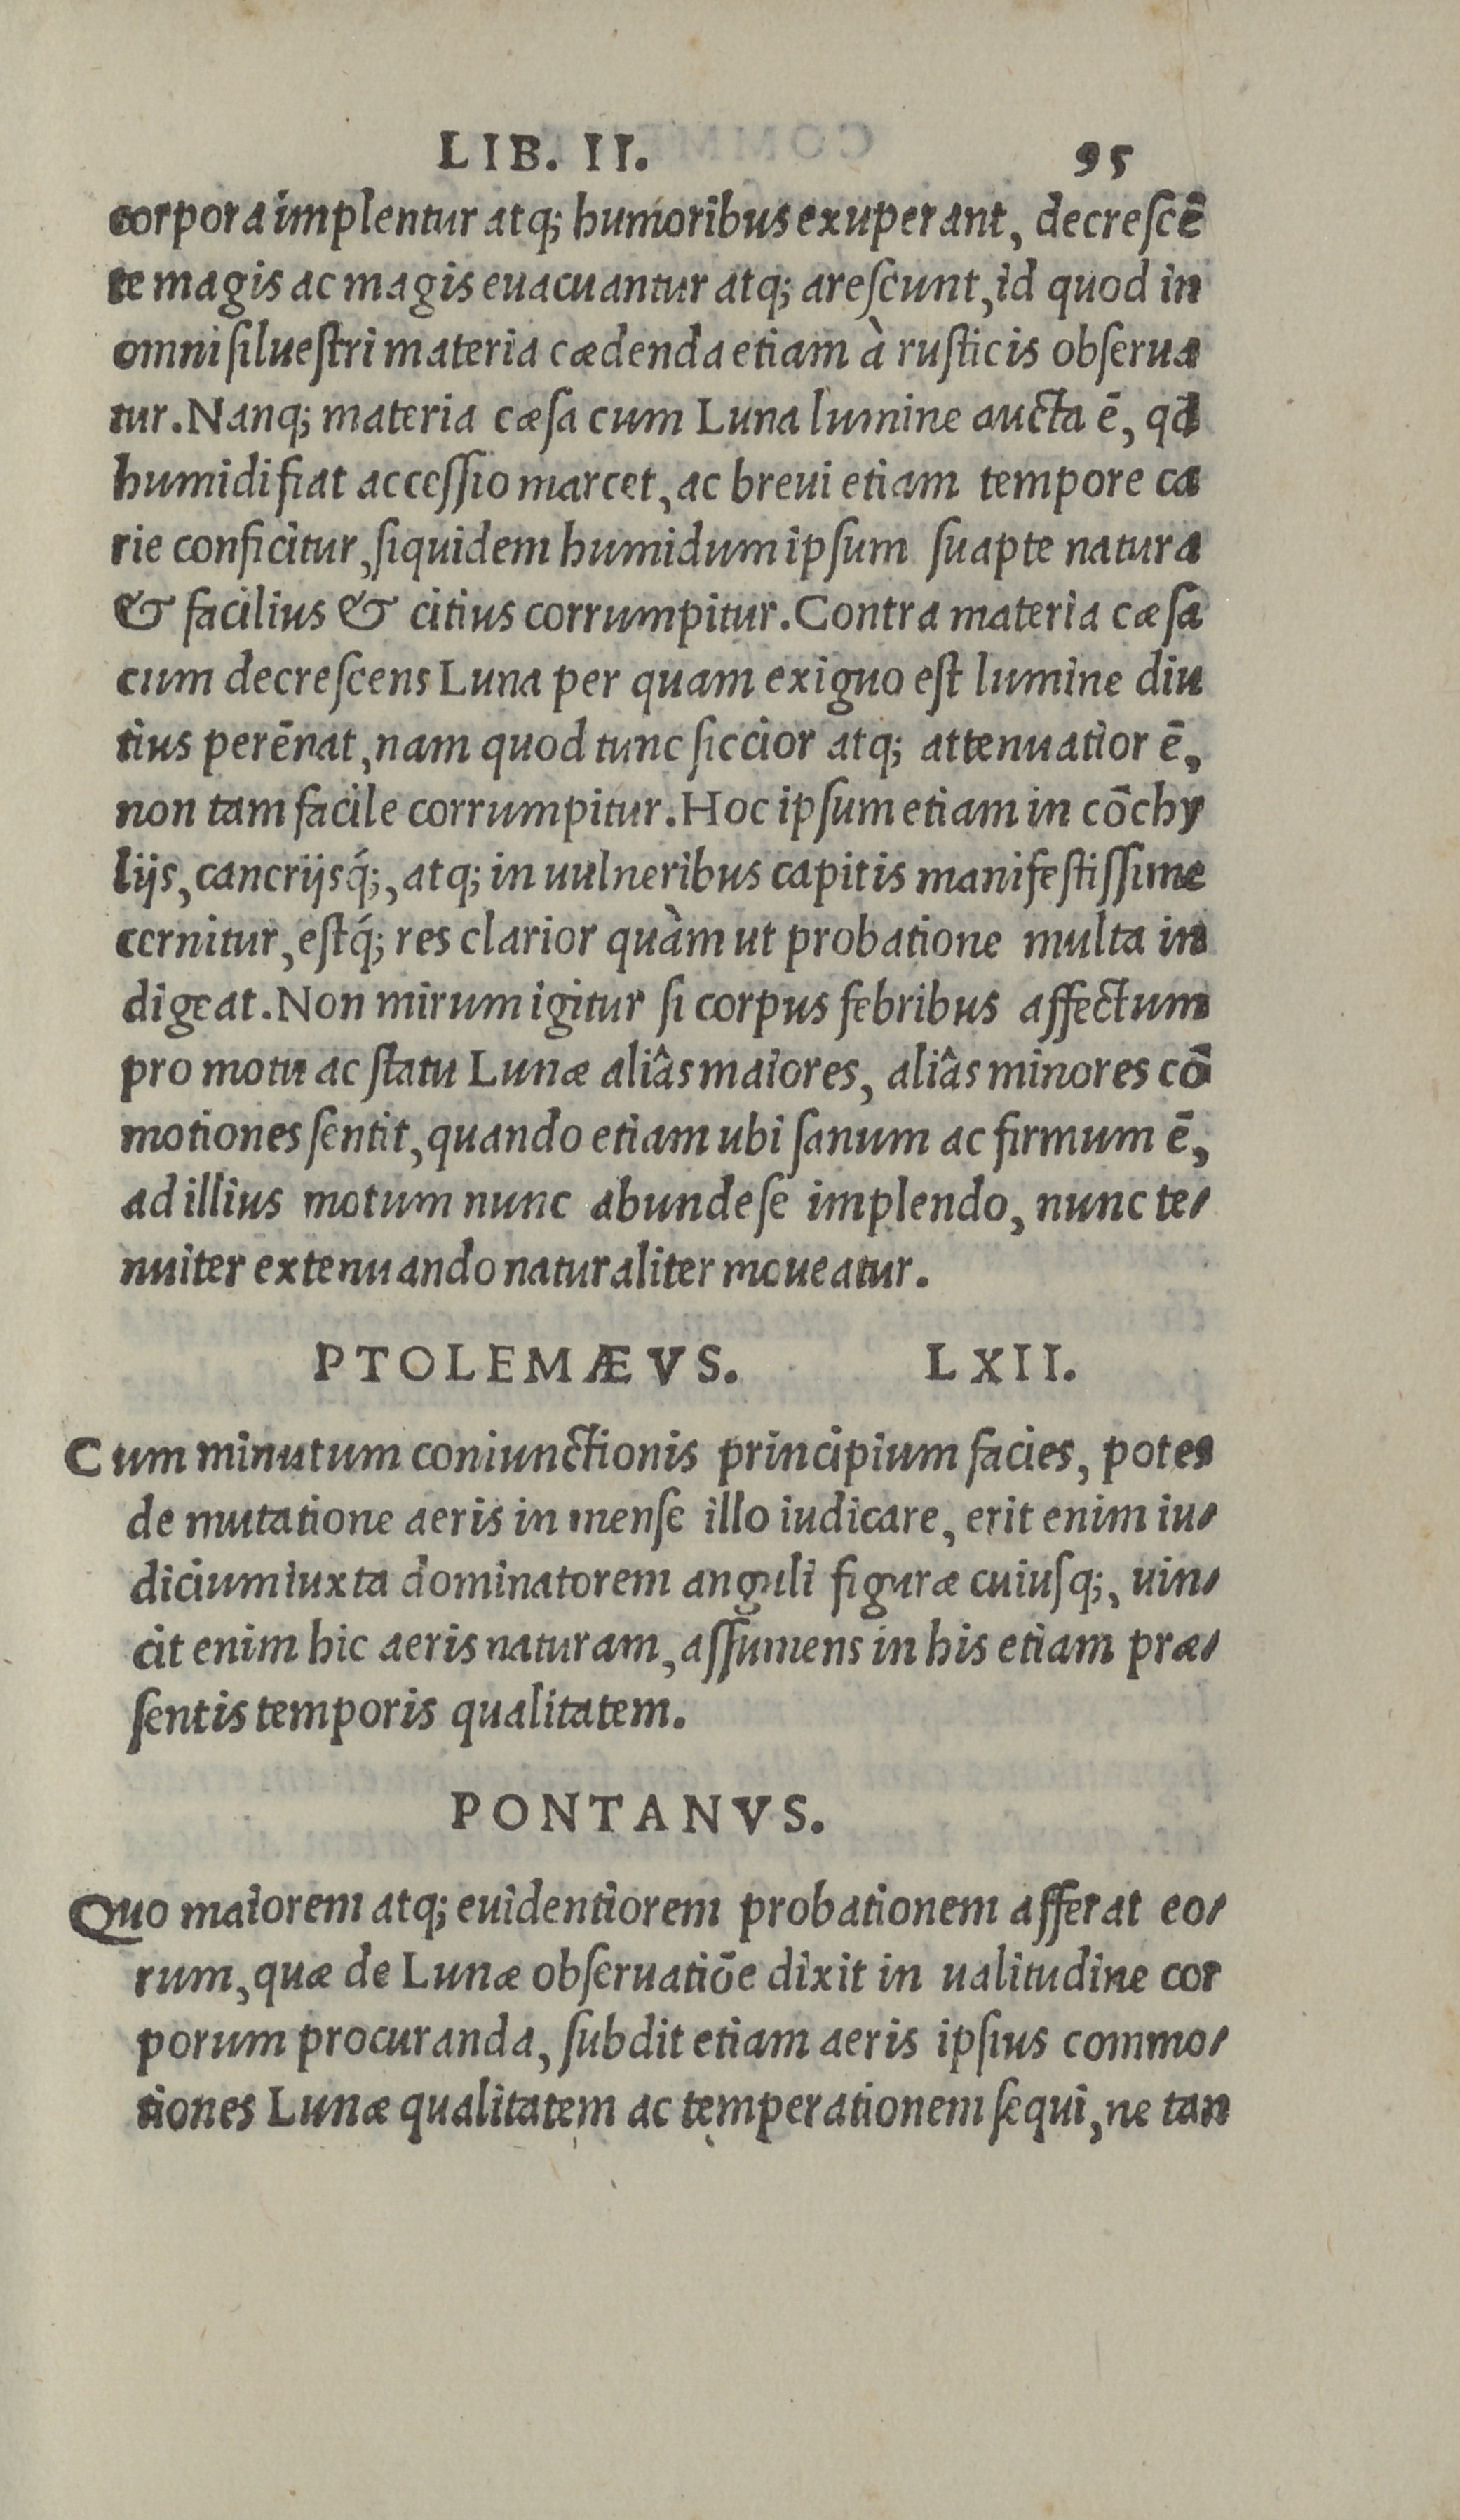 LIB. II. 95
corpora implentur atq; humoribus exuperant, decrescē
te magis ac magis euacuantur atq; arescunt, id quod in
omni siluestri materia cædenda etiam à rusticis obserua
tur. Nanq; materia cæsa cum Luna lumine aucta ē, qd
humidi fiat accessio marcet, ac breui etiam tempore ca
rie conficitur, siquidem humidum ipsum suapte natura
& facilius & citius corrumpitur. Contra materia cæsa
cum decrescens Luna per quam exiguo est lumine diu
tius perēnat, nam quod tunc siccior atq; attenuatior ē,
non tam facile corrumpitur. Hoc ipsum etiam in cōchy
lijs, cancrijsq́;, atq; in uulneribus capitis manifestissime
cernitur, estq́; res clarior quàm ut probatione multa in
digeat. Non mirum igitur si corpus febribus affectum
pro motu ac statu Lunæ aliâs maiores, aliâs minores cō
motiones sentit, quando etiam ubi sanum ac firmum ē,
ad illius motum nunc abunde se implendo, nunc te-
nuiter extenuando naturaliter moueatur.
PTOLEMÆVS. LXII.
Cum minutum coniunctionis principium facies, potes
de mutatione aeris in mense illo iudicare, erit enim iu-
dicium iuxta dominatorem anguli figuræ cuiusq;, uin-
cit enim hic aeris naturam, assumens in his etiam præ-
sentis temporis qualitatem.
PONTANVS.
Quo maiorem atq; euidentiorem probationem afferat eo-
rum, quæ de Lunæ obseruatiōe dixit in ualitudine cor
porum procuranda, subdit etiam aeris ipsius commo-
tiones Lunæ qualitatem ac temperationem sequi, ne tan